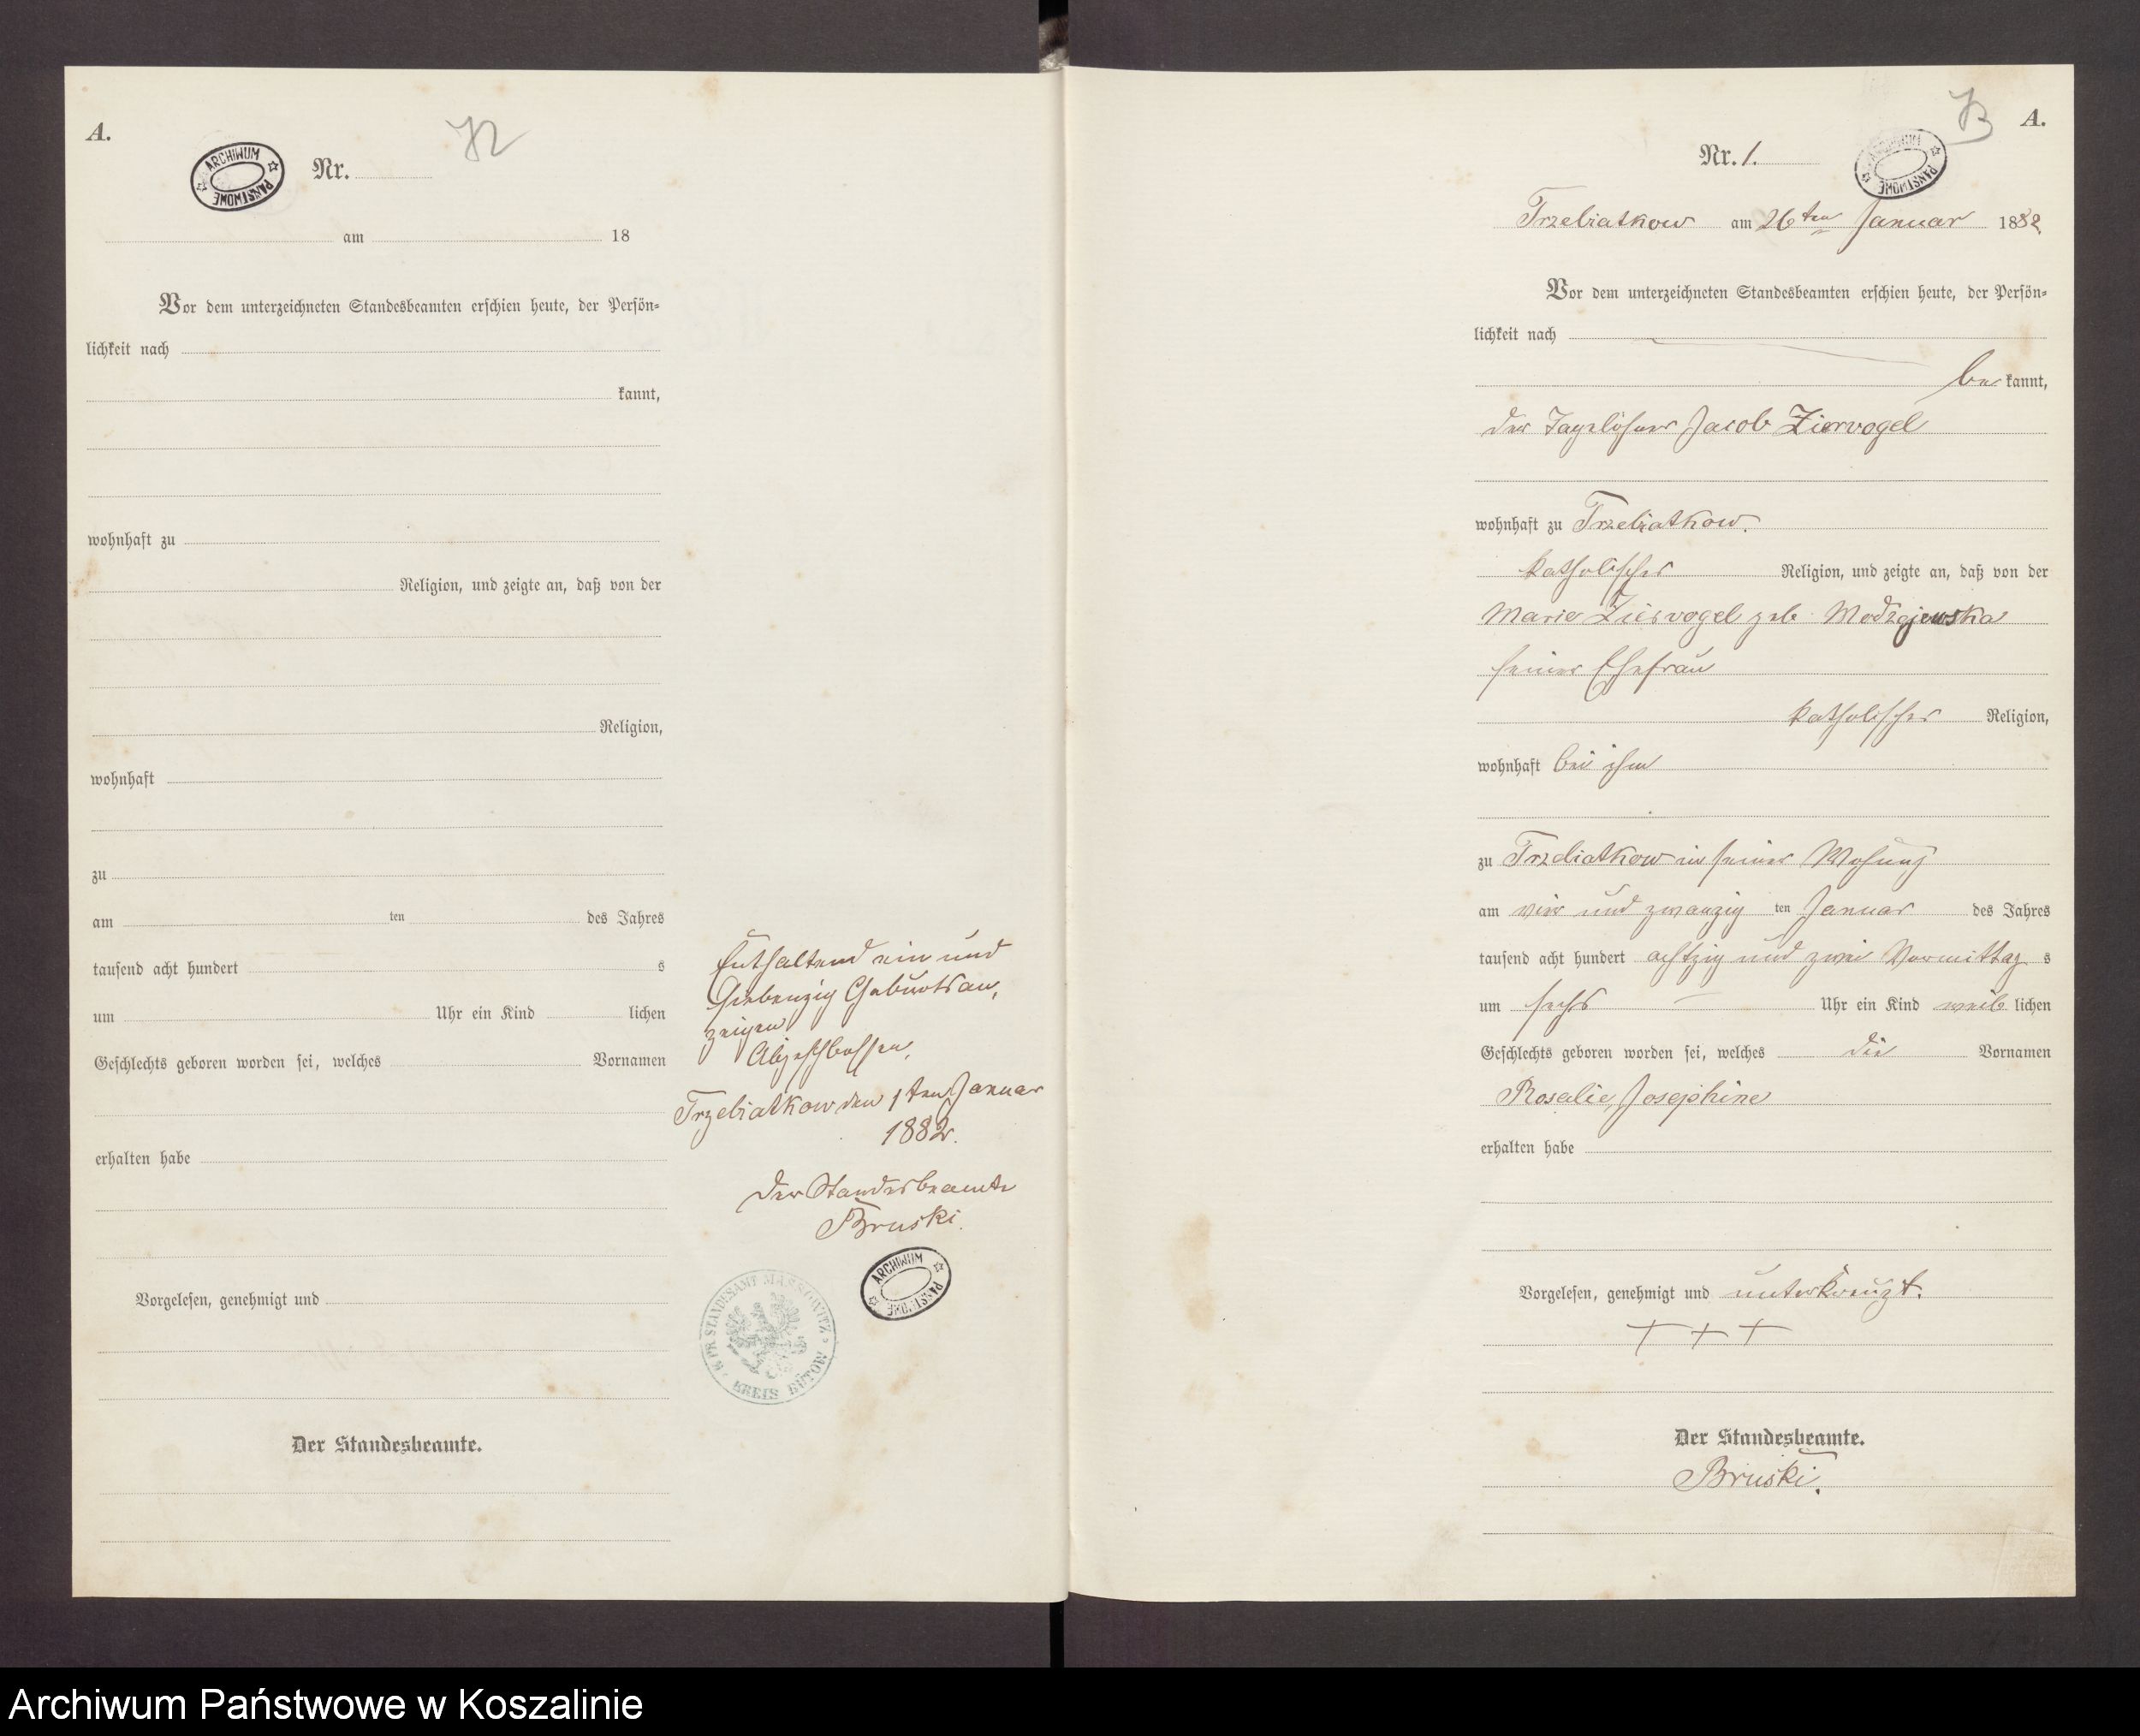 A.
72
ARCHIWUM PAŃSTWOWE
Nr.
am 18
Vor dem unterzeichneten Standesbeamten erschien heute, der Persön-
lichkeit nach
kannt,
wohnhaft zu
Religion, und zeigte an, daß von der
Religion,
wohnhaft
zu
am ten des Jahres
tausend acht hundert s
um Uhr ein Kind lichen
Geschlechts geboren worden sei, welches Vornamen
erhalten habe
Vorgelesen, genehmigt und
Der Standesbeamte.
Enthaltend ein und
Siebenzig Geburtsan,
zeigen
Abgeschlossen,
Trzebiatkow den 1ten Januar
1882.
Der Standesbeamte
Bruski.
ARCHIWUM PAŃSTWOWE
K. PR. STANDESAMT
KREIS BÜTOW
73
A.
Nr. 1.
ARCHIWUM PAŃSTWOWE
Trzebiatkow am 26ten Januar 1882
Vor dem unterzeichneten Standesbeamten erschien heute, der Persön-
lichkeit nach
be kannt,
der Tagelöhner Jacob Ziervogel
wohnhaft zu Trzebiatkow.
katholischer Religion, und zeigte an, daß von der
Marie Ziervogel geb. Modzejewska
seiner Ehefrau
katholischer Religion,
wohnhaft bei ihm
zu Trzebiatkow in seiner Wohung
am vier und zwanzig ten Januar des Jahres
tausend acht hundert achtzig und zwei Vormittag s
um sechs Uhr ein Kind weib lichen
Geschlechts geboren worden sei, welches die Vornamen
Rosalie, Josephine
erhalten habe
Vorgelesen, genehmigt und unterkreuzt.
+ + +
Der Standesbeamte.
Bruski.
Archiwum Państwowe w Koszalinie